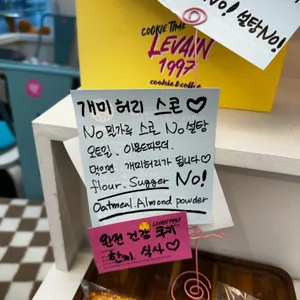 COOKIE TIME
LEVAIN
1997
cookie & coffee
No! 설탕No!
개미허리 스콘♡
No 밀가루 스콘, No 설탕
오트밀, 아몬드파우더.
먹으면 개미허리가 됩니다♡
flour. Sugger No!
Oatmeal. Almond powder
완전 건강 쿠키
한끼 식사♡